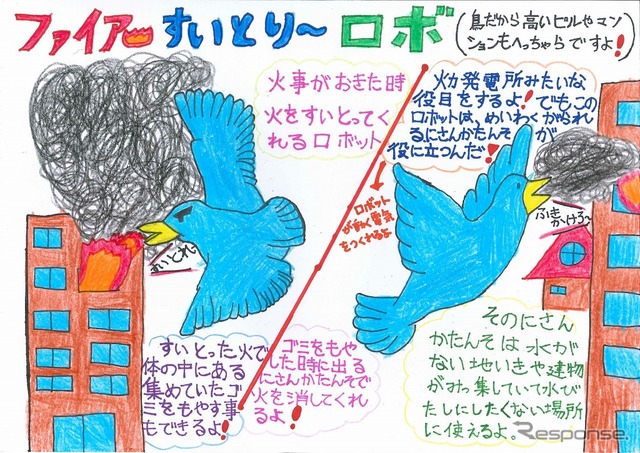 ファイアーすいとり～ロボ
(鳥だから高いビルやマン
ションもへっちゃらですよ!)
火事がおきた時
火をすいとってく
れるロボット
火力発電所みたいな
役目をするよ!でもこの
ロボットは、めいわくがられ
るにさんかたんそが
役に立つんだ!
ロボット
が動く電気
をつくれるよ
すいとれ～
ふきかけろ～
すいとった火で
体の中にある
集めていたゴ
ミをもやす事
もできるよ!
ゴミをもや
した時に出る
にさんかたんそで
火を消してくれ
るよ!
そのにさん
かたんそは水が
ない地いきや建物
がみっ集していて水び
たしにしたくない場所
に使えるよ。
Response.